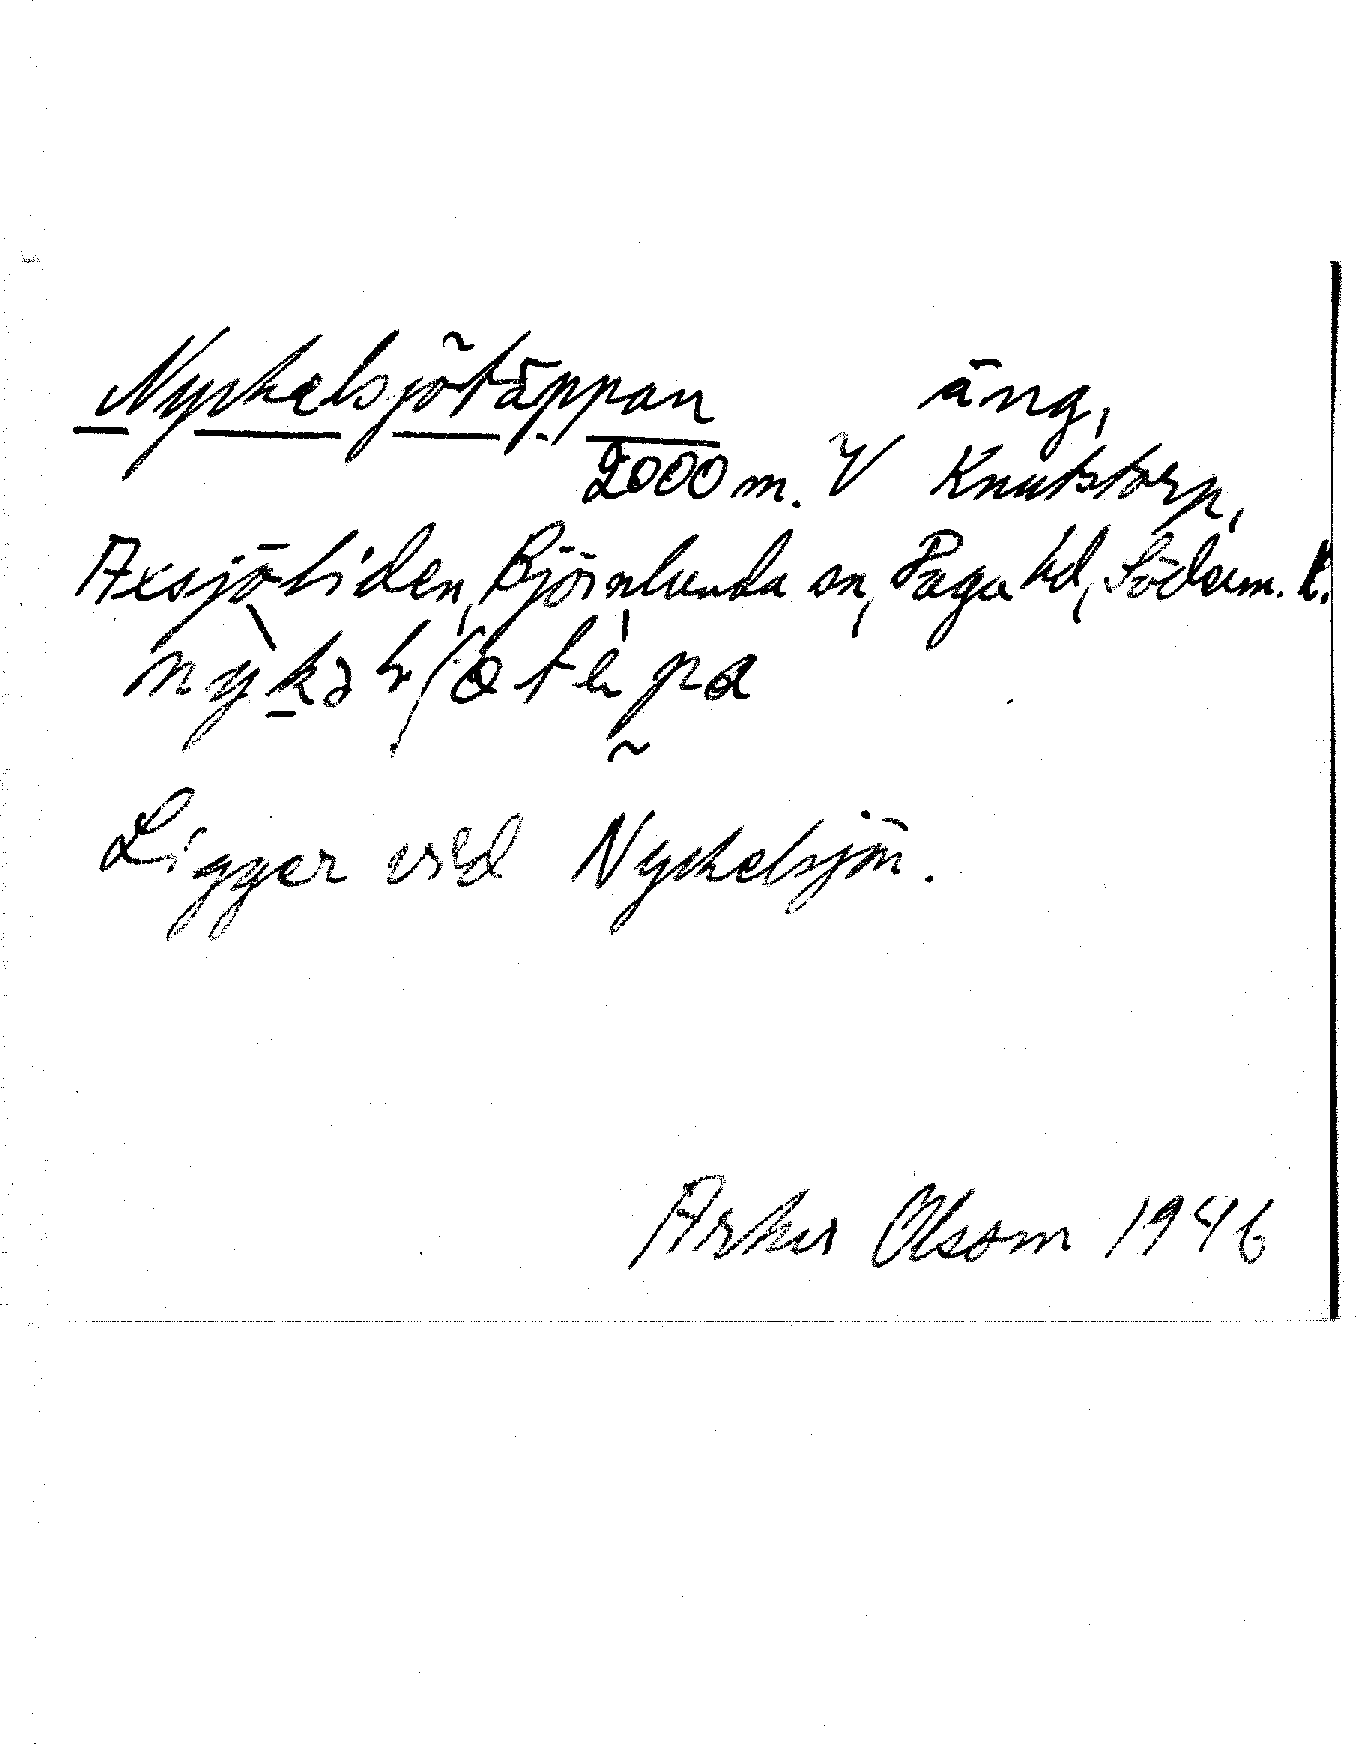 Nyckelsjötäppan äng,
2000 m. V Knutstorp,
Axsjötiden, Björnlunda sn, Daga hd, Söderm. l.
Ligger vid Nyckelsjön.
Artur Olsson 1946